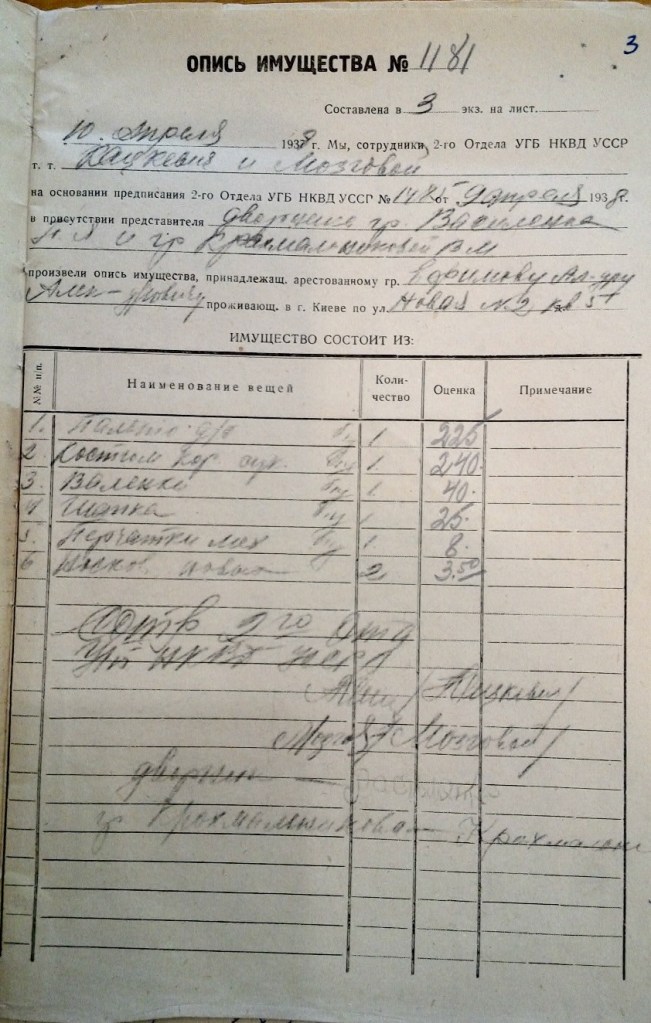 3
ОПИСЬ ИМУЩЕСТВА № 1181
Составлена в 3 экз. на лист.
10 апреля 1938 г. Мы, сотрудники 2-го Отдела УГБ НКВД УССР
т. т. и Мозговой
на основании предписания 2-го Отдела УГБ НКВД УССР № от 9 апреля 1938 г.
в присутствии представителя дворника гр. Василенко
и гр Крахмальниковой В М
произвели опись имущества, принадлежащ. арестованному гр. Ефимову Ал-дру
проживающ. в г. Киеве по ул. Новая № 2 кв
ИМУЩЕСТВО СОСТОИТ ИЗ:
№№ п/п. Наименование вещей Коли-чество Оценка Примечание
1. Пальто д/с б/у 1 225
2 Костюм б/у 1 240.
3 Валенки б/у 1 40.
4 Шапка б/у 1 25.
5. Перчатки б/у 1 8.
6 Носков новых 2 3.50
Сотр 2го Отд
УГБ НКВД УССР
/Мозговой/
дворник
гр Крахмальникова